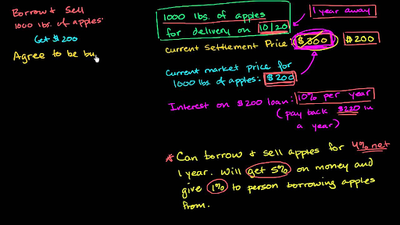 Borrow & Sell
1000 lbs. of apples
Get $200
Agree to be bu
1000 lbs. of apples
for delivery on 10/20
1 year away
Current Settlement Price: $300 $200
Current market price for
1000 lbs of apples: $200
Interest on $200 loan: 10% per year
(pay back $220 in
a year)
* Can borrow & sell apples for 4% net
1 year. Will get 5% on money and
give 1% to person borrowing apples
from.